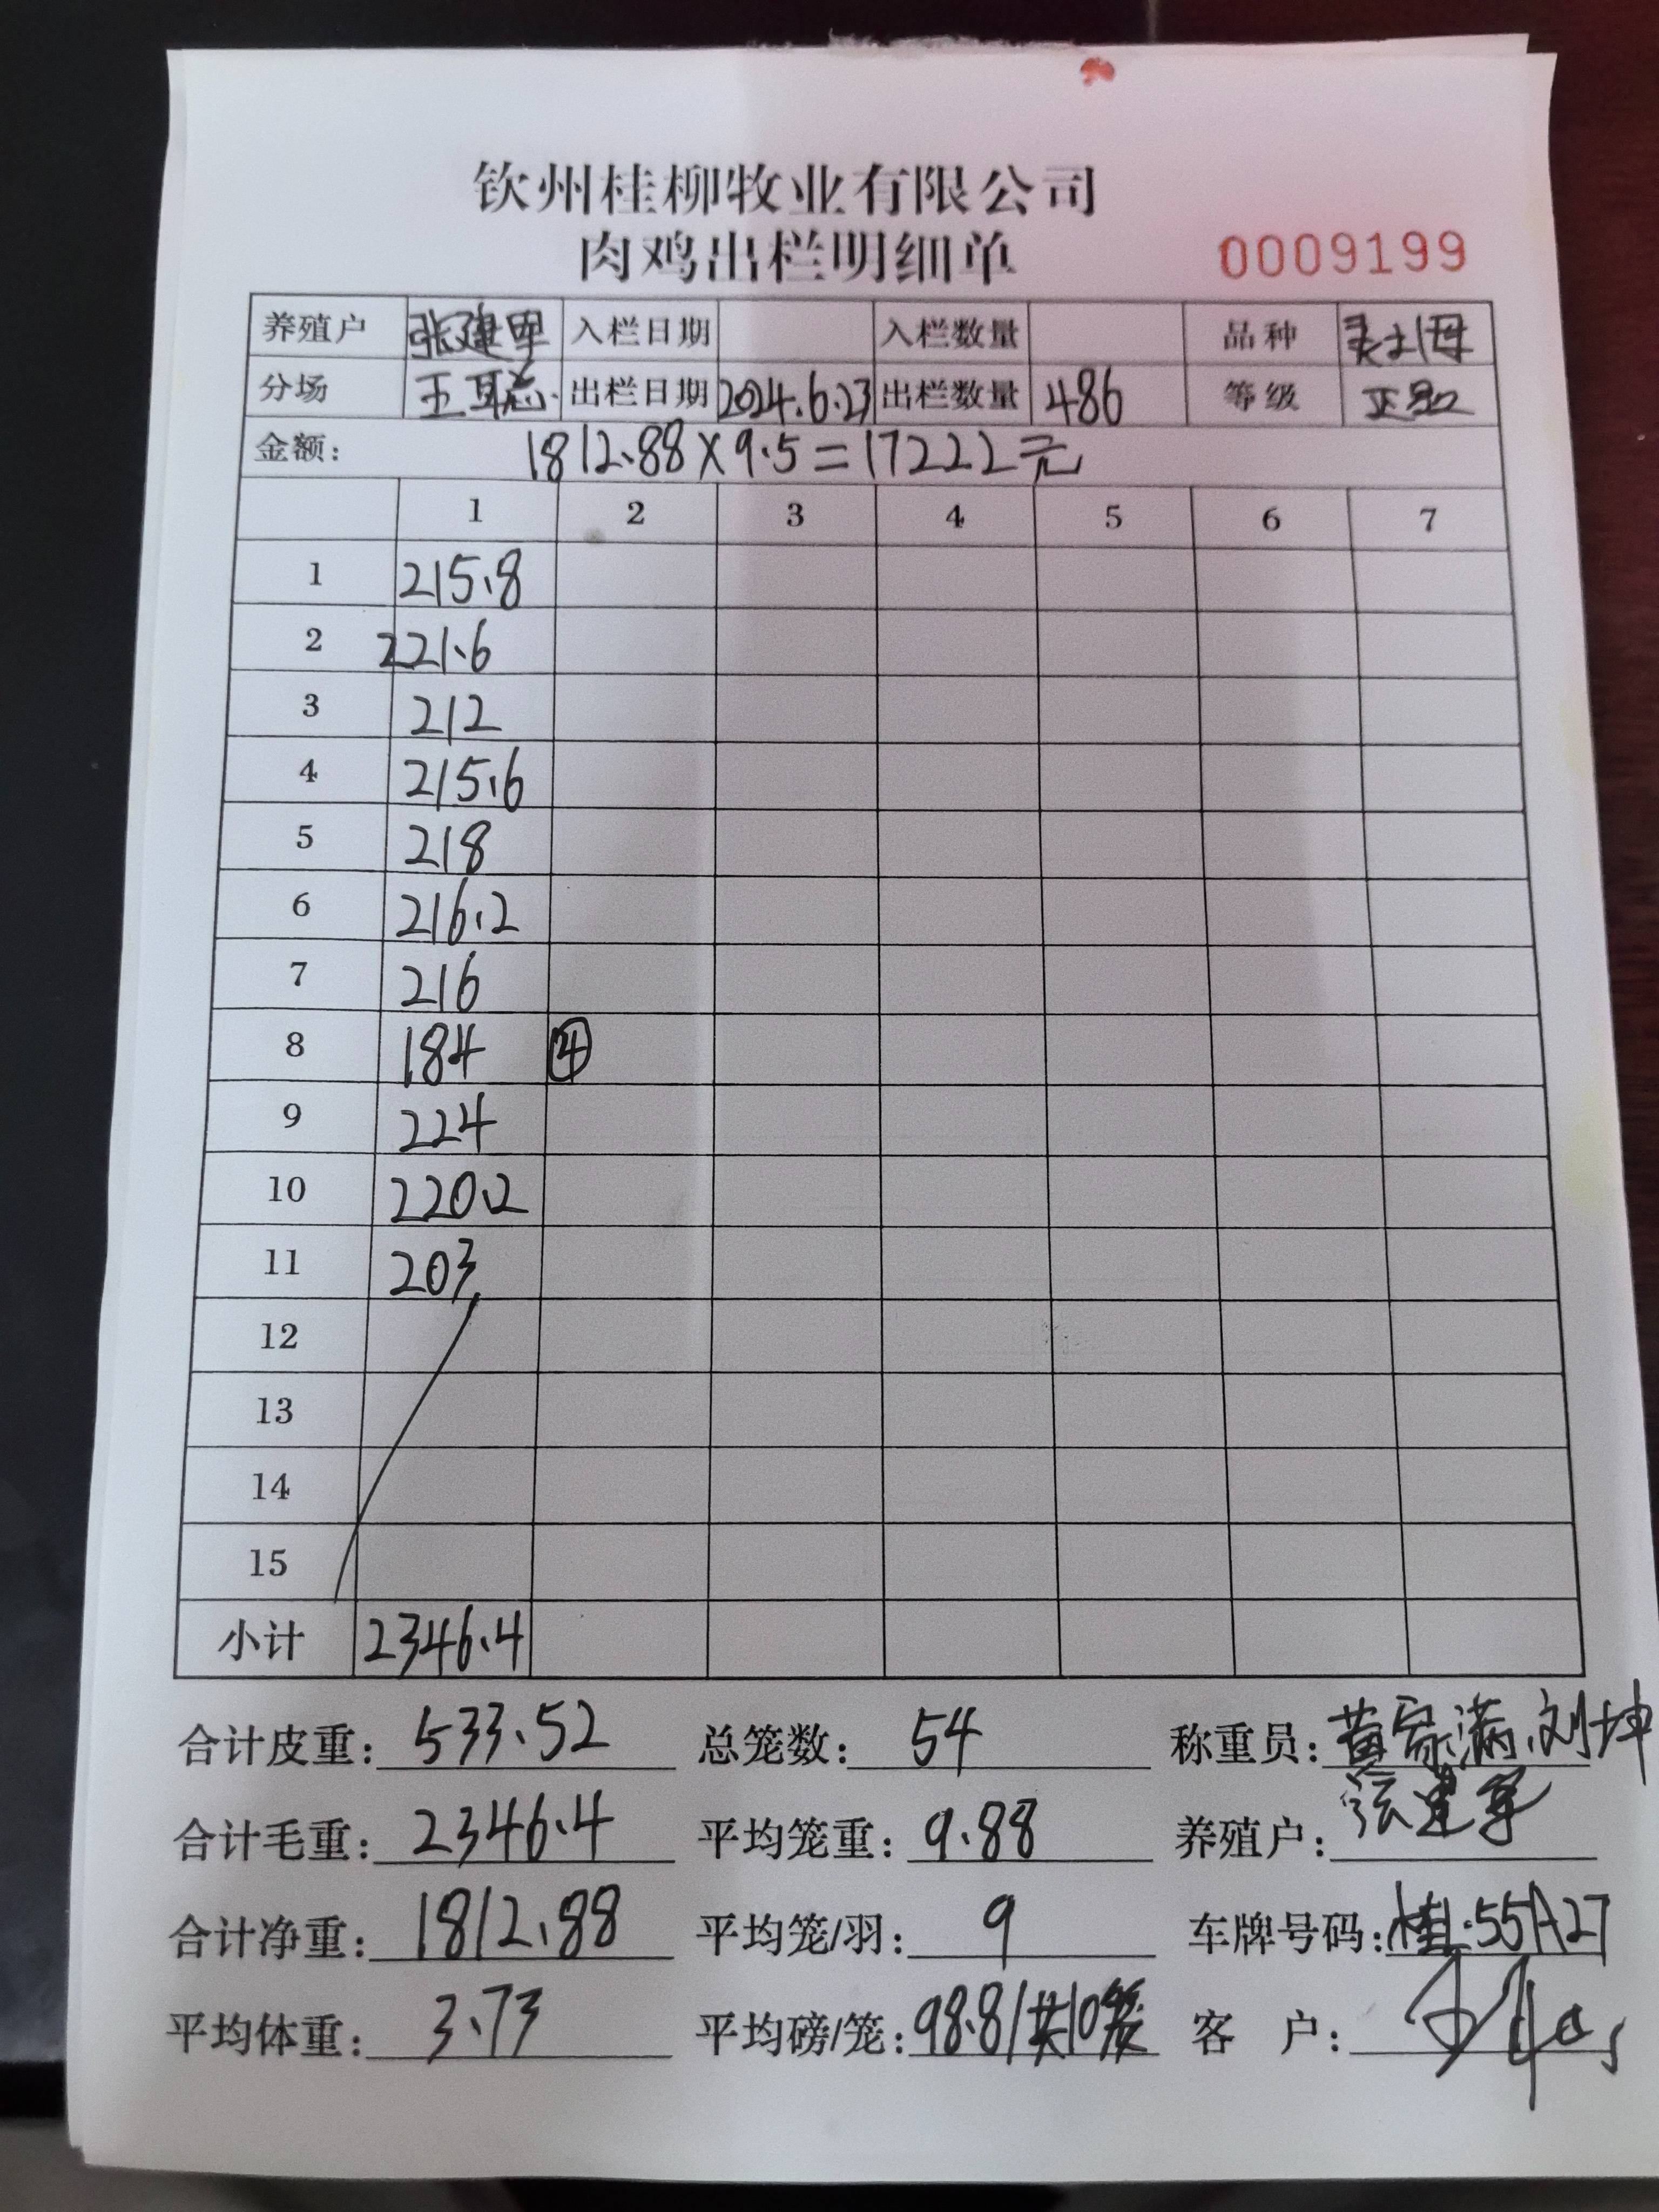 钦州桂柳牧业有限公司
肉鸡出栏明细单 0009199
养殖户 张建军 入栏日期 入栏数量 品种 灵土母
分场 王耳志 出栏日期 2024.6.23 出栏数量 486 等级 正品
金额: 1812.88×9.5=17222元
1 2 3 4 5 6 7
1 215.8
2 221.6
3 212
4 215.6
5 218
6 216.2
7 216
8 184 ④
9 224
10 220.2
11 203
12
13
14
15
小计 2346.4
合计皮重: 533.52 总笼数: 54 称重员: 黄家满、刘坤
合计毛重: 2346.4 平均笼重: 9.88 养殖户: 张建军
合计净重: 1812.88 平均笼/羽: 9 车牌号码: 桂L·55A27
平均体重: 3.73 平均磅/笼: 98.8/共10笼 客 户: